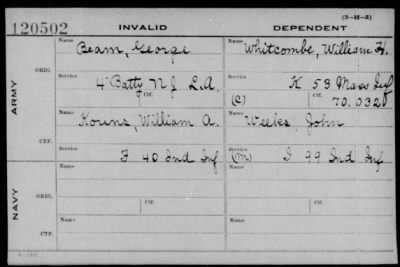 (3-H-3)
120502 INVALID DEPENDENT
ARMY
ORIG.
Name Beam, George
Name Whitcombe, William H.
Service 4" Batty N J L.A.
Service K 53 Mass Inf
Ctf.
(C) Ctf. 70.032
CTF.
Name Kouns, William A.
Name Weeks, John
Service F 40 Ind Inf
Service (M) I 99 Ind Inf
NAVY
ORIG.
Name
Name
Service
Service
Ctf.
Ctf.
CTF.
Name
Name
Service
Service